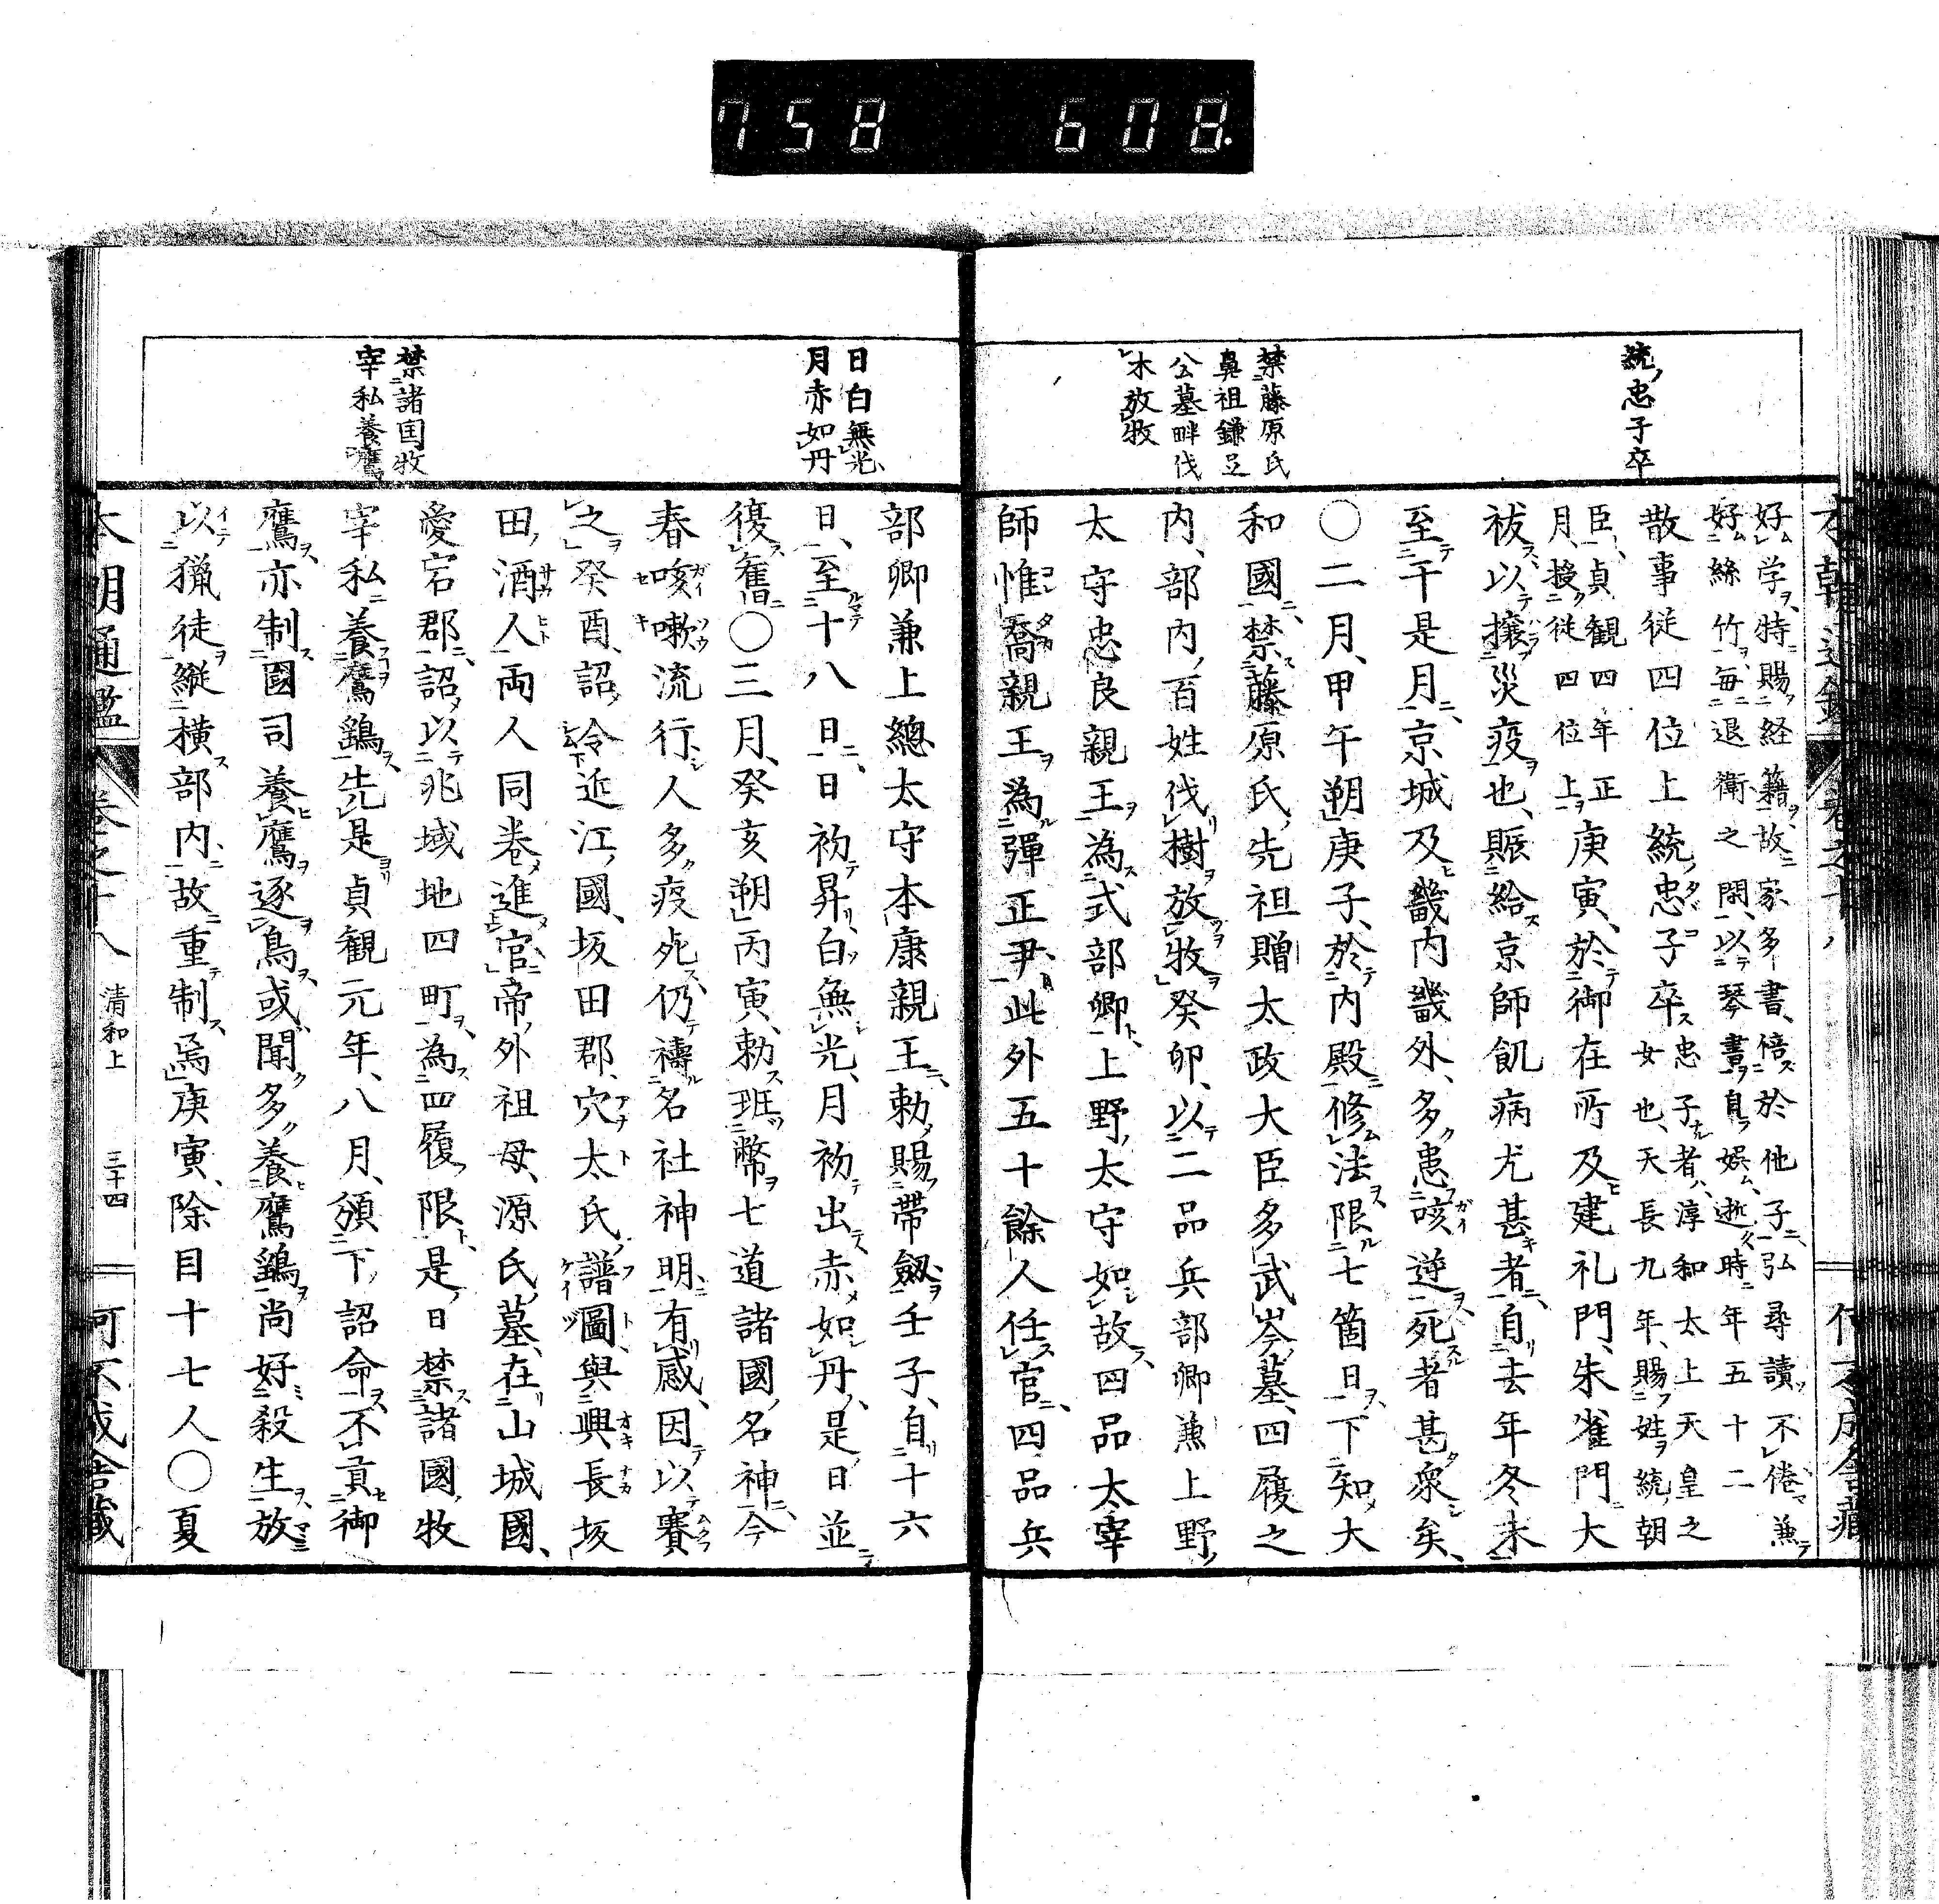 758 608.
統忠子卒
禁藤原氏
鼻祖鎌足
公墓畔伐
木放牧
好学特賜経籍故家多書倍於他子弘尋讀不倦兼
好絲竹毎退衛之閑以琴書自娯逝時年五十二
散事従四位上統忠子卒忠子者淳和太上天皇之
女也天長九年賜姓統朝
臣貞観四年正
月授従四位上庚寅於御在所及建礼門朱雀門大
祓以攘災疫也賑給京師飢病尤甚者自去年冬末
至于是月京城及畿内畿外多患咳逆死者甚衆矣
〇二月甲午朔庚子於内殿修法限七箇日下知大
和國禁藤原氏先祖贈太政大臣多武岑墓四履之
内部内百姓伐樹放牧癸卯以二品兵部卿兼上野
太守忠良親王為式部卿上野太守如故四品太宰
師惟喬親王為彈正尹此外五十餘人任官四品兵
日白無光
月赤如丹
禁諸国牧
宰私養鷹
部卿兼上總太守本康親王勅賜帶劔壬子自十六
日至十八日日初昇白無光月初出赤如丹是日並
復舊〇三月癸亥朔丙寅勅班幣七道諸國名神今
春咳嗽流行人多疫死仍禱名社神明有感因以賽
之癸酉詔令近江國坂田郡穴太氏譜圖與興長坂
田酒人両人同巻進官帝外祖母源氏墓在山城國
愛宕郡詔以兆域地四町為四履限是日禁諸國牧
宰私養鷹鷂先是貞観元年八月頒下詔命不貢御
鷹亦制國司養鷹逐鳥或聞多養鷹鷂尚好殺生放
以獵徒縦横部内故重制焉庚寅除目十七人〇夏
本朝通鑑 巻之十八 清和上 三十四